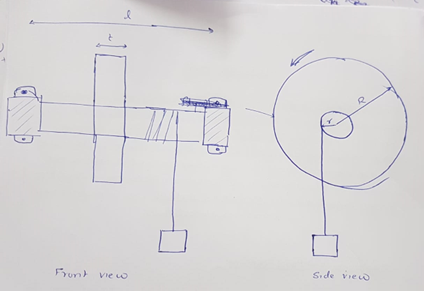 l
t
R
r
Front view
Side view